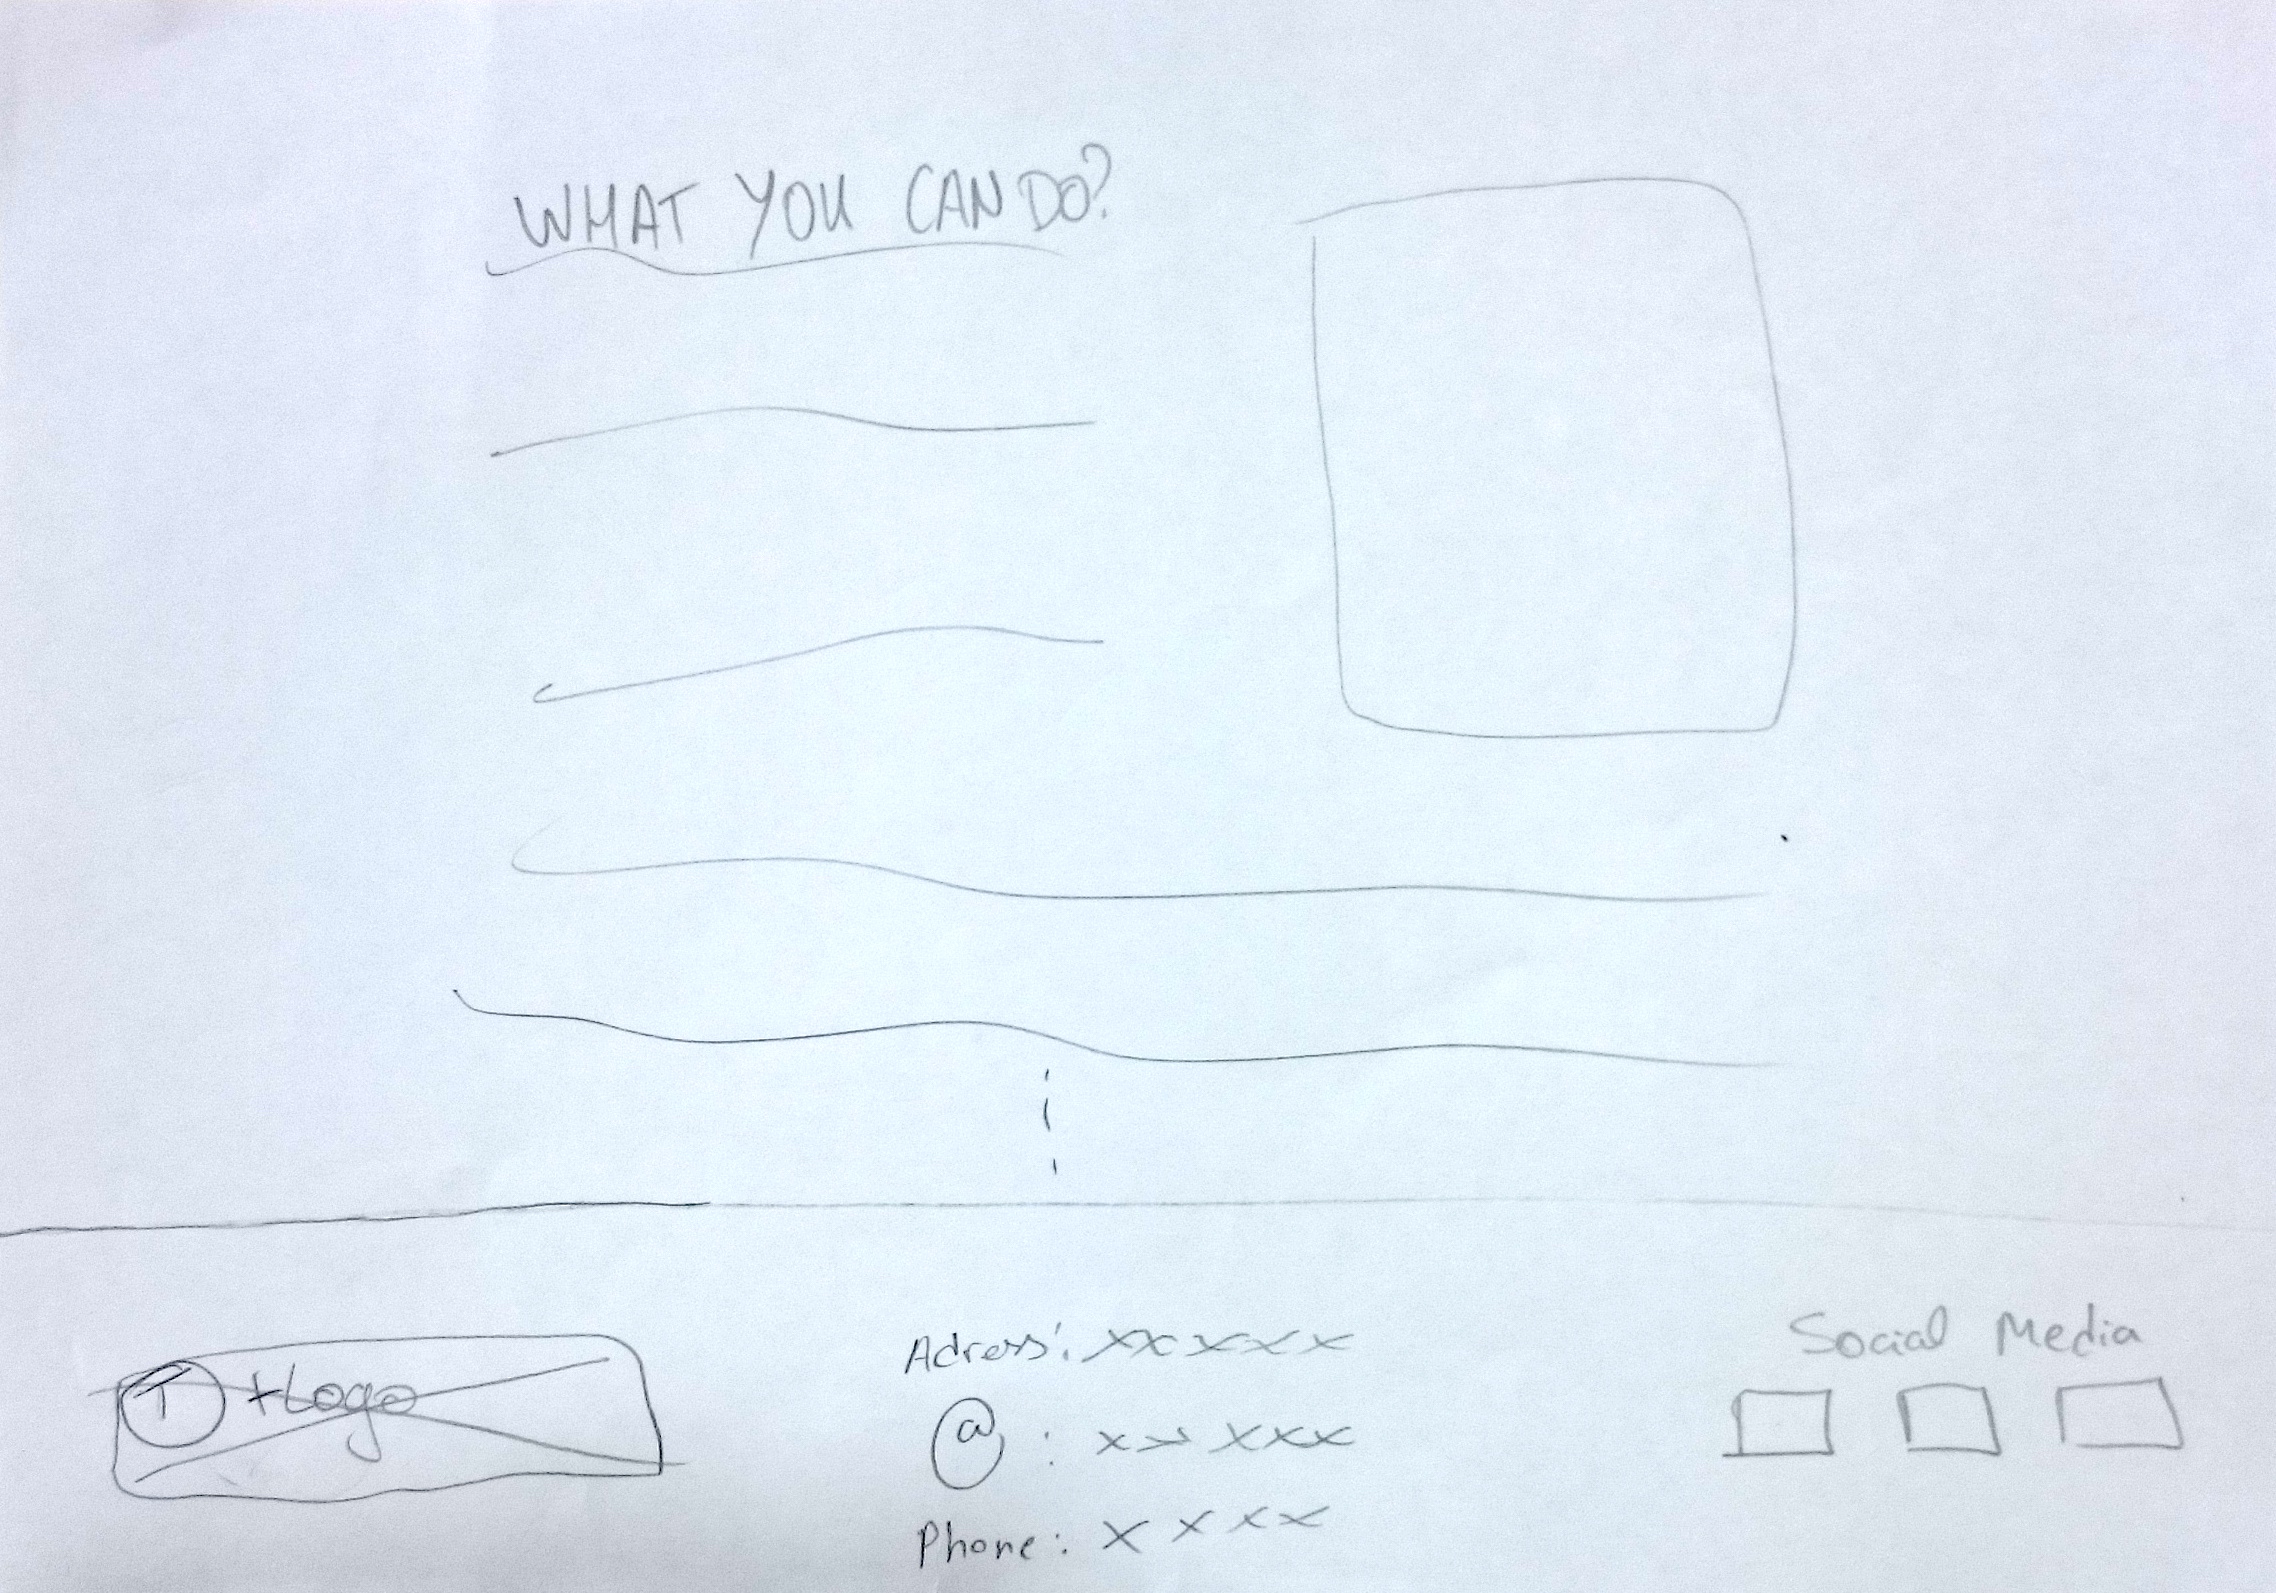 WHAT YOU CAN DO?
T +Logo
Adress: xxxxx
@ : xxxxx
Phone: xxxx
Social Media